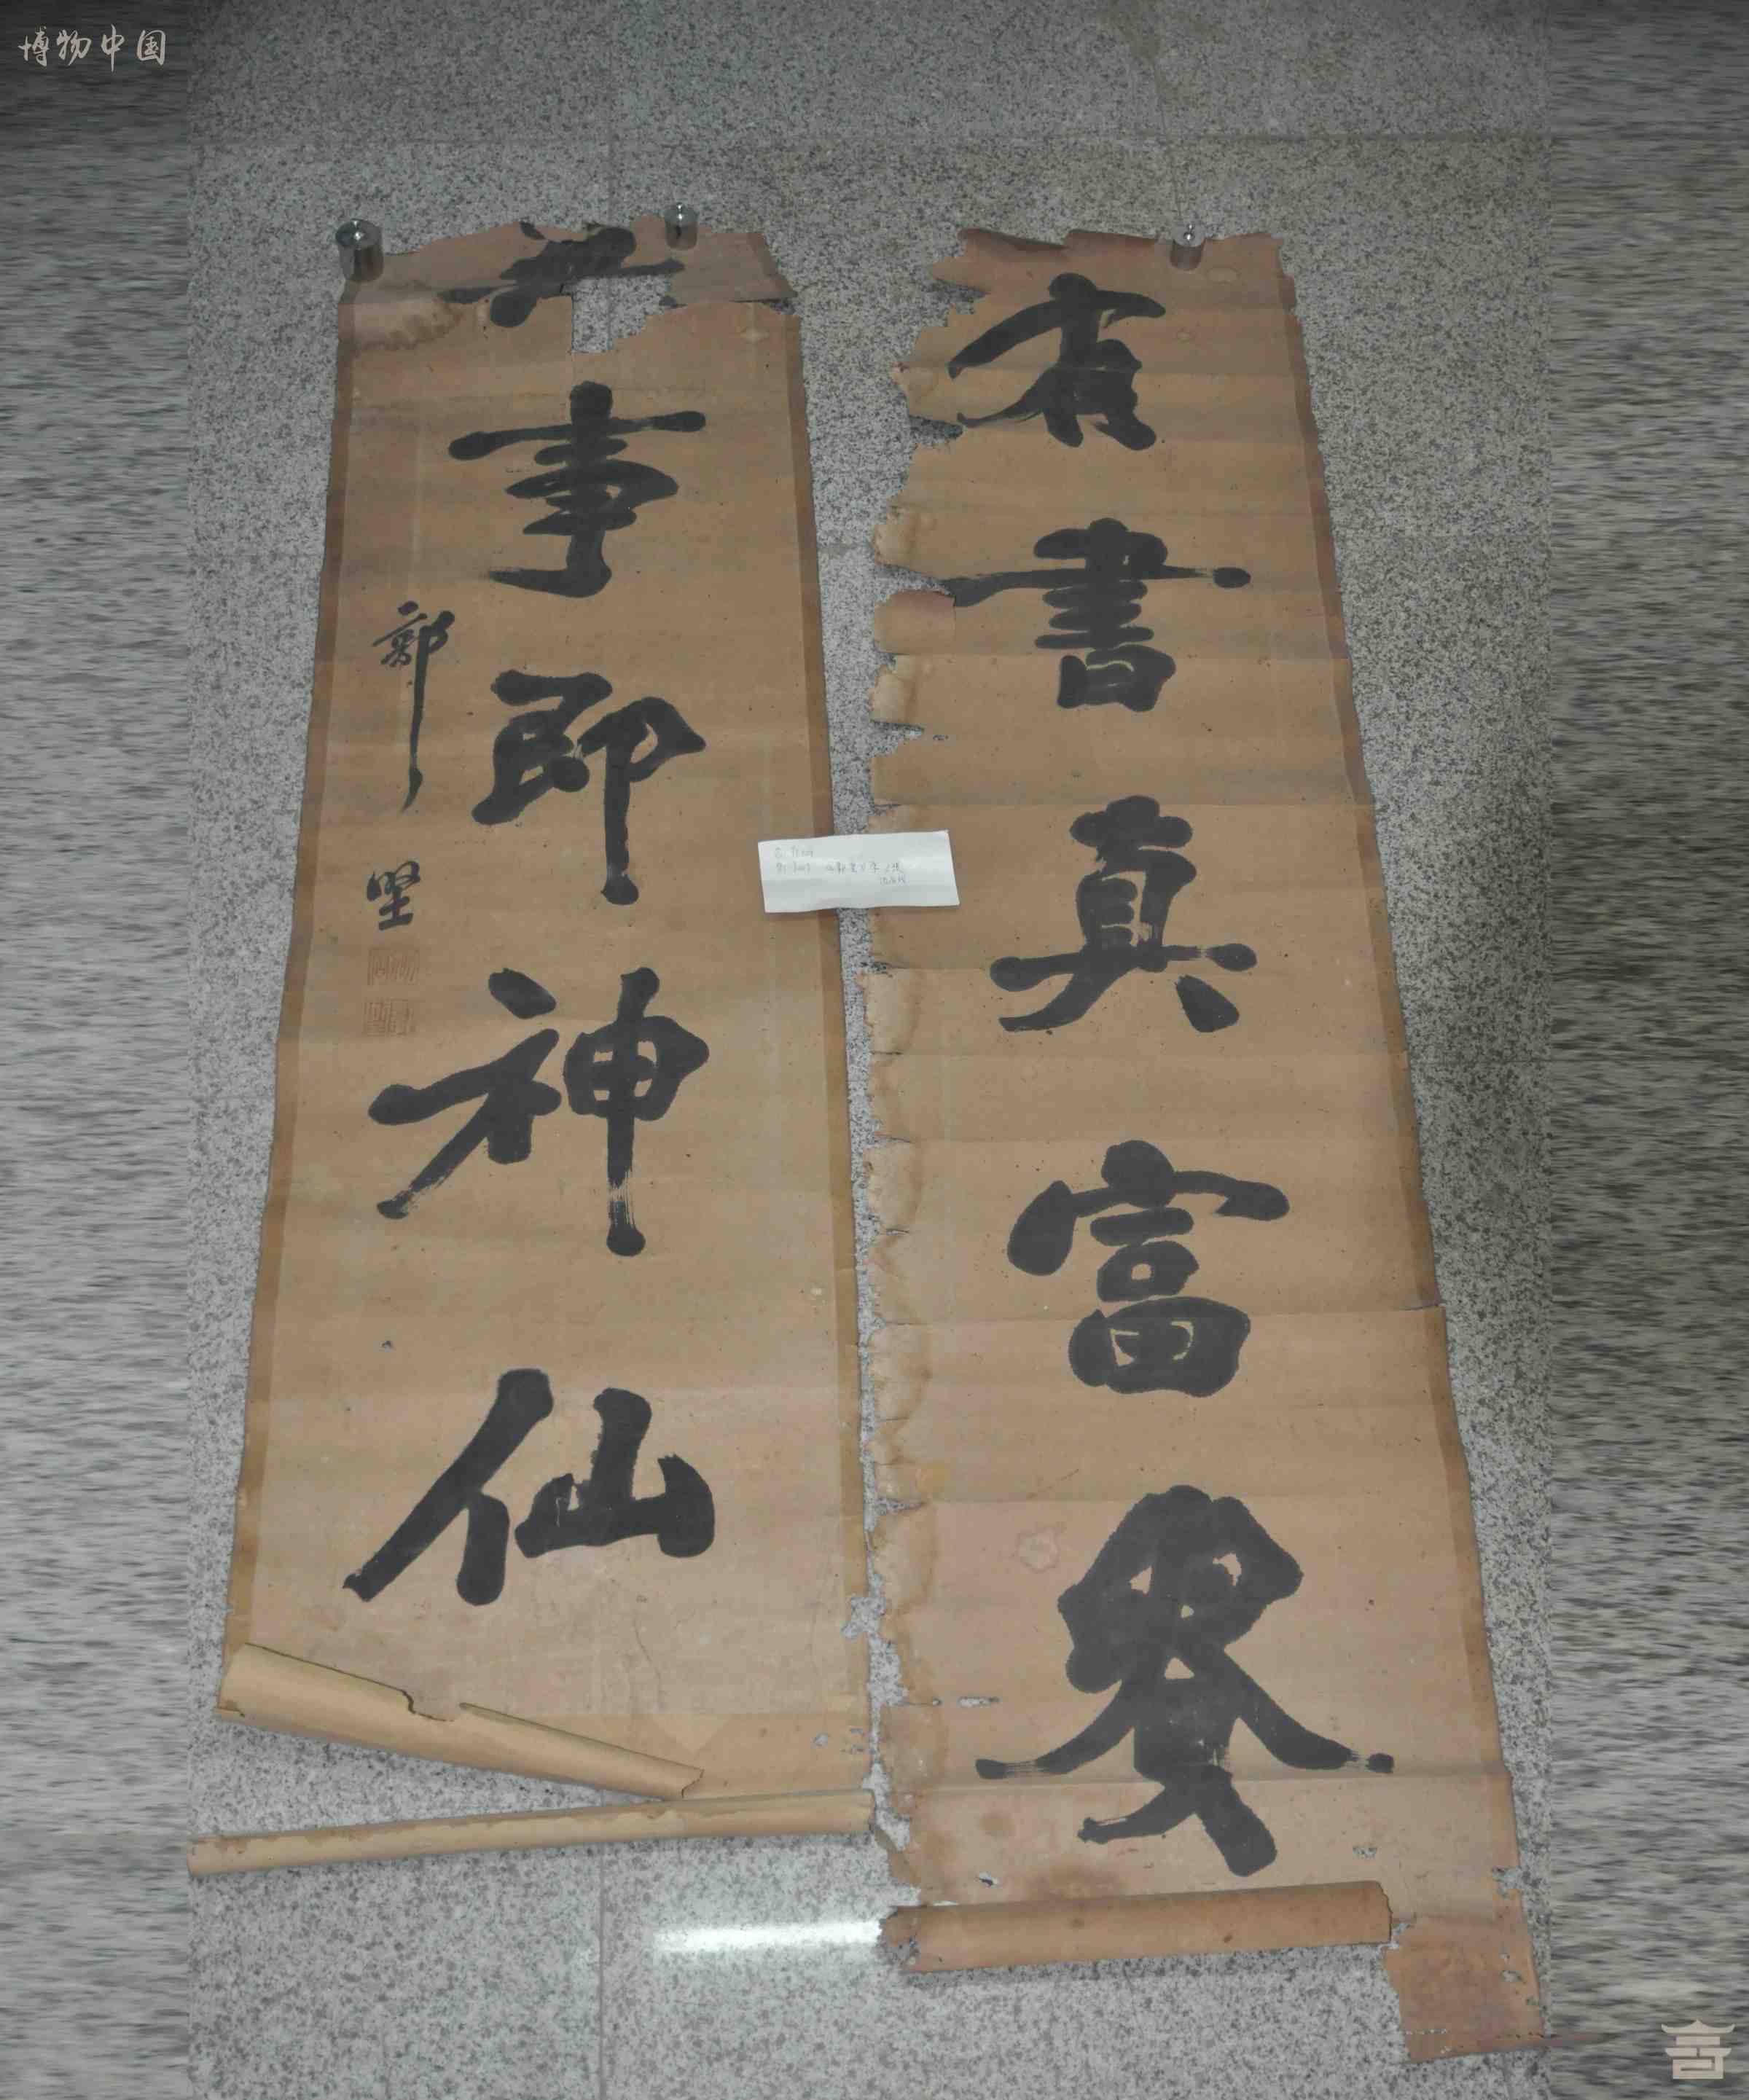 博物中国
有書真富貴
事即神仙
郭堅